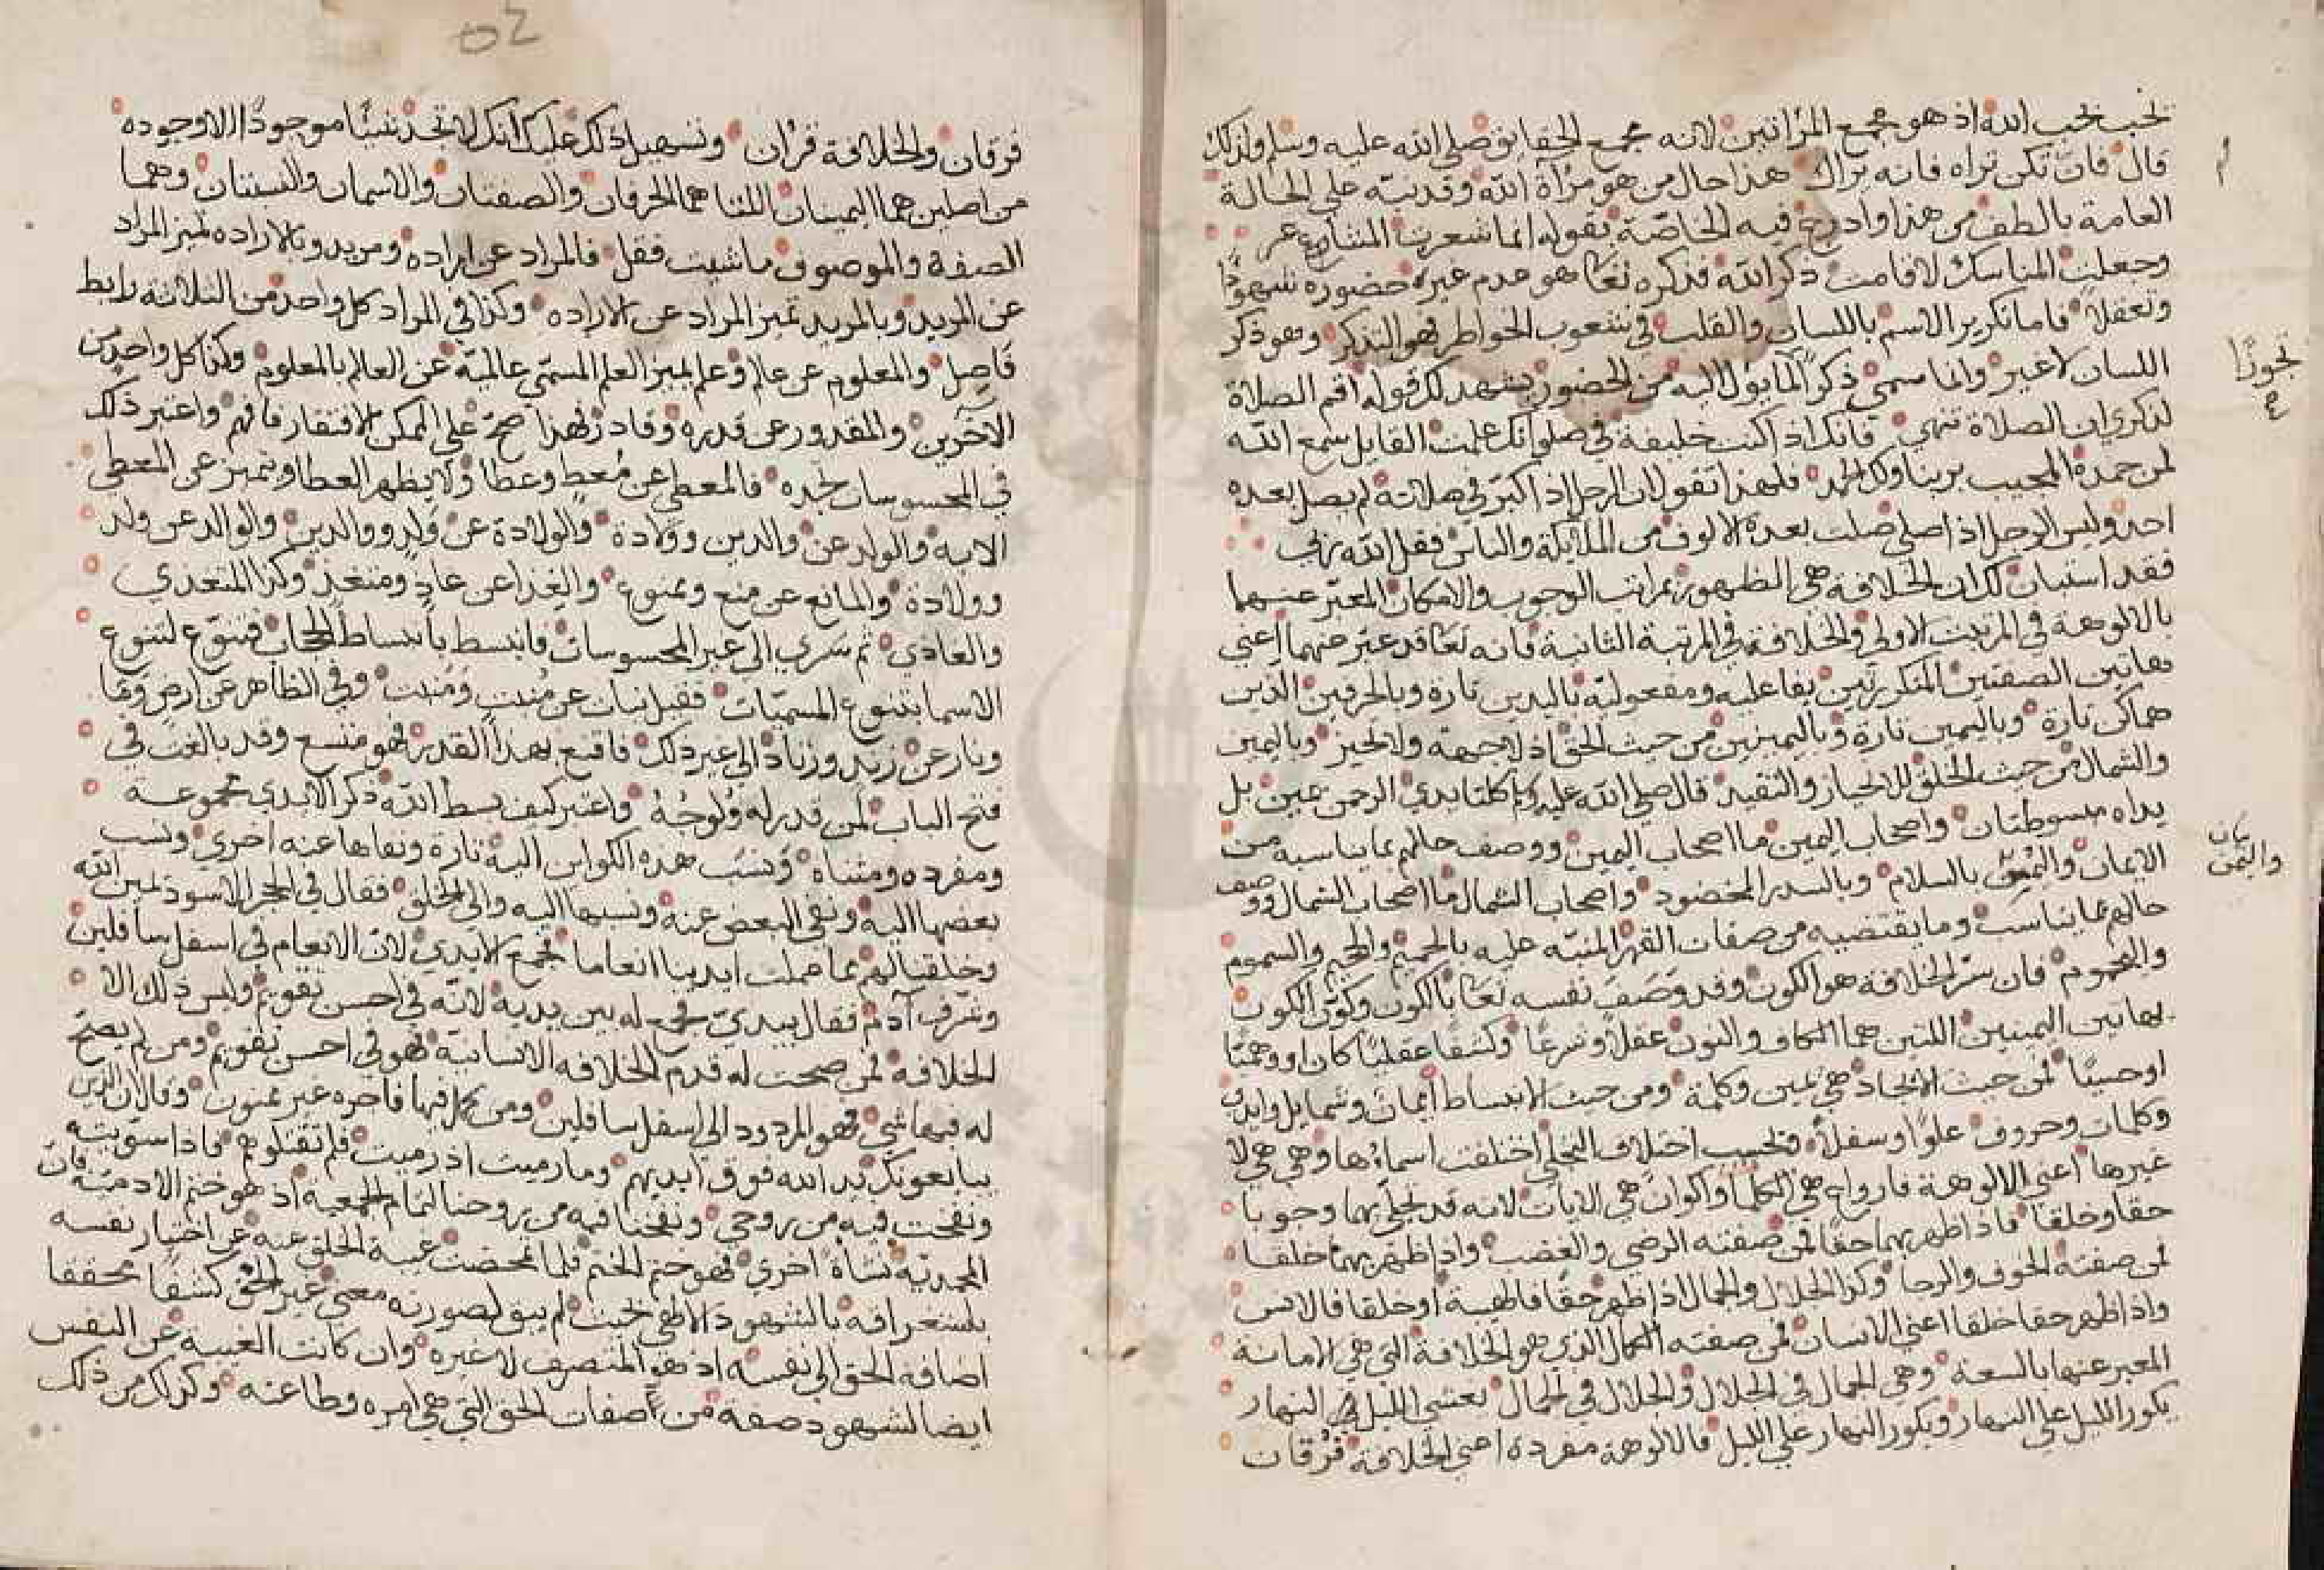 تحب تحب الله اذ هو مجمع المرٔاتين لانه مجمع الحقايق صلى الله عليه وسلم ولذلك
قال فان تكن تراه فانه يراك هذا حال من هو مرٔاة الله وقد نبّه على الحالة
العامة بالطف من هذا وادرج فيه الخاصّة بقوله انما شعرت المشاعر
وجعلت المناسك لاقامت ذكر الله فذكره تعا هو عدم غيره حضوره شهودًا
وتعقلا فاما تكرير الاسم باللسان والقلب في شعوب الخواطر فهو التذكر وهو ذكر
اللسان لا غير وانما سمي ذكرًا لما يؤل اليه من الحضور يشهد لك قوله اقم الصلاة
لذكري ان الصلاة تنهي فانك اذا كنت خليفة في صلواتك علمت القايل سمع الله
لمن حمده المجيب بربنا ولك الحمد فلهذا تقول ان الرجل اذا كبّر في صلاته لم يصل بعده
احد وليس الرجل اذا صلى صلت بعده الالوف من الملايكة والناس فقل الله
فقد استبان لك ان الخلافة هي الظهور بمراتب الوجوب والامكان المعبّر عنهما
بالالوهة في المرتبت الاولى والخلافة في المرتبة الثانية فانه تعا قد عبّر عنهما اعني
هاتين الصفتين المتكررتين بفاعليه ومفعوليه باليدين تارة وبالحرفين الذين
هما كن تارة وباليمين تارة وباليمينين من حيث الحق اذ لا جهة ولا تحيز وباليمين
والشمال من حيث الخلق للانحياز والتقيد قال صلى الله عليه وسلم كلتا يدي الرحمن يمين بل
يداه مبسوطتان واصحاب اليمين ما اصحاب اليمين ووصف حالهم بما يناسبه من
الايمان واليمن بالسلام وبالسدر المخضود واصحاب الشمال ما اصحاب الشمال ووصف
حالهم بما يناسب وما يقتضيه من صفات القهر المنبّه عليه بالحميم والجحيم والسموم
واليحموم فان سرّ الخلافة هو الكون وقد وصف نفسه تعا بالكون وكوّن الكون
بهاتين اليمينين اللتين هما الكاف والنون عقلا وشرعًا وكشفًا عقليًا كان او وهميًا
او حسيًا فمن حيث الاتحاد هي يمين وكلمة ومن حيث الانبساط أيمان وشمايل وايدي
وكلمات وحروف علوًا وسفلا وبحسب اختلاف التجلي اختلفت اسماؤها وهي هي لا
غيرها اعني الالوهة فارواح هي الكلمات واكوان هي الايات لانه قد تجلى بهما وجوبا
حقا وخلقا فاذا ظهر بهما حقا فمن صفته الرضى والغضب واذا ظهر بهما خلقا
فمن صفته الخوف والرجا وكذا الجلال والجمال اذا ظهر حقا فالهيبة او خلقا فالانس
واذا ظهر حقا خلقا اعني الانسان فمن صفته الكمال الذي هو الخلافة التي هي الامانة
المعبر عنها بالسعة وهي الجمال في الجلال والجلال في الجمال يغشي الليل النهار
يكور الليل على النهار ويكور النهار على الليل فالالوهة مفردة اعني الخلافة فرقان
تجوزًا
واليمن
فرقان والخلافة قران وتسهيل ذلك عليك انك لا تجد شيئًا موجودًا الا وجوده
من اصلين هما اليمينان اللتنا هما الحرفان والصفتان والاسمان والنسبتان وهما
الصفة والموصوف ما شيت فقل فالمراد عن اراده ومريد وبالاراده تميز المراد
عن المريد وبالمريد تميز المراد عن الاراده وكذا في المراد كل واحد من الثلاثه رابط
فاصل والمعلوم عن عالم وعلم تميز العلم المسمّى عالميّة عن العالم بالمعلوم وكذا كل واحد من
الآخرين والمقدور عن قدره وقادر فلهذا صحّ على الممكن الافتقار فافهم واعتبر ذلك
في المحسوسات تجده فالمعطى عن مُعطٍ وعطا ولا يظهر العطا وتميز عن المعطى
الا به والولد عن والدين وولادة والولادة عن ولد ووالدين والوالد عن ولد
وولادة والمانع عن منع وممنوع والغذا عن غاذٍ ومتغذٍ وكذا المتغذي
والغاذي ثم سرى الى غير المحسوسات فانبسط بانبساط الجهات فتنوّع لتنوع
الاسما بتنوع المسميّات فقيل نبات عن مُنبتٍ ومُنبَت وفي الظاهر عن ارض وما
ونار عن زندٍ وزناد الى غير ذلك فاقنع بهذا القدر فهو متسع وقد بالغت في
فتح الباب لمن قدر له ولوجُهُ واعتبر كيف بسط الله ذكر الايدي مجموعة
ومفرده ومثناه ونسب هذه الكواين اليه تارة ونفاها عنه اخرى ونسب
بعضها اليه ونفى البعض عنه ونسبها اليه والى الخلق فقال في الحجر الاسود يمين الله
وخلقنا لهم مما عملت ايدينا انعاما فجمع الايدي لانّ الانعام في اسفل سافلين
وشرّف آدم فقال بيديّ فجمع له بين يديه لانّه في احسن تقويم وليس ذلك الا
الخلافة فمن صحت له قدم الخلافه الانسانيّة فهو في احسن تقويم ومن لم يصحّ
له فيها شي فهو المردود الى اسفل سافلين ومن كمل فيها فاجره غير ممنون وقال ان الذين
يبايعونك يد الله فوق ايديهم وما رميت اذ رميت فلم تقتلوهم فاذا سوّيته
ونفخت فيه من روحي ونفخنا فيه من روحنا لتمام الجمعية اذ هو ختم الادميّة فان
المحمديّة نشاة اخرى فهو ختم الختم فلما تمحضت غيبة الخلق عنه عن اختيار نفسه
باستغراقه بالشهود الالهي بحيث لم يبق لصورته معنى غير الحق كشفا محققا
اضافه الحق الى نفسه اذ هو المتصرف لا غيره وان كانت الغيبة عن النفس
ايضا لشهود صفة من صفات الحق التي هي امره وطاعته وكذلك من ذلك